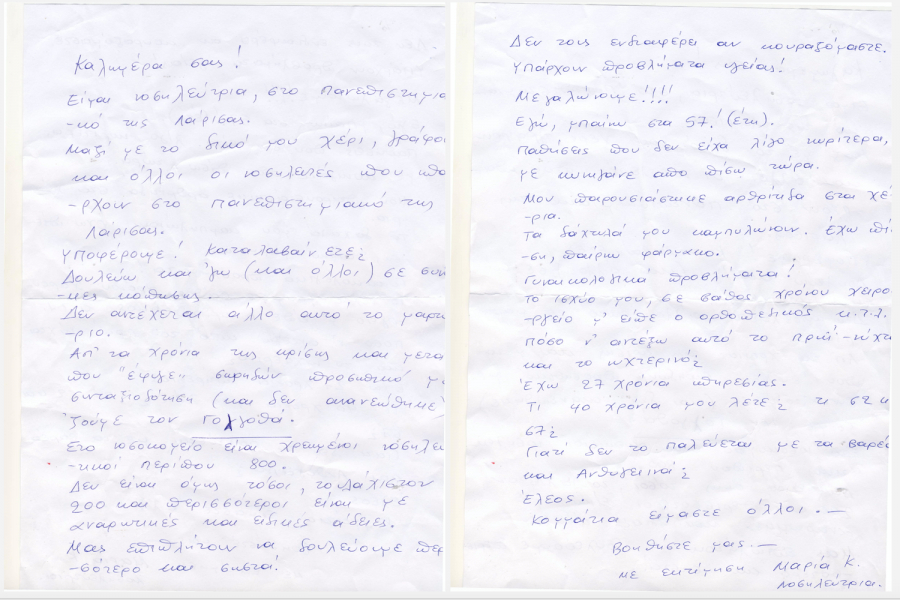 Καλημέρα σας!
Είμαι νοσηλεύτρια, στο Πανεπιστημιο
-κό της Λάρισας.
Μαζί με το δικό μου χέρι, γράφο
και άλλοι οι νοσηλευτές που υπα
-ρχουν στο Πανεπιστημιακό της
Λάρισας.
Υποφέρουμε! Καταλαβαίνετε;
Δουλεύω και 'γω (και άλλοι) σε συν
-κες κόπωσης.
Δεν αντέχεται άλλο αυτό το μαρτ
-ριο.
Απ' τα χρόνια της κρίσης και μετα
που "έφυγε" σκηδόν προσωπικό γ.
συνταξιοδότηση (και δεν ανανεώθηκε)
ζούμε τον Γολγοθά.
Στο νοσοκομείο είναι χρεωμένοι νοσηλευ
-τικοί περίπου 800.
Δεν είναι όμως τόσοι, το λάχιστον
200 και περισσότεροι είναι με
αναρωτικές και ειδικές άδειες.
Μας επιπλήτουν να δουλεύουμε περ
-σότερο και σωστά.
Δεν τους ενδιαφέρει αν κουραζόμαστε.
Υπάρχουν προβλήματα υγείας!
Μεγαλώνουμε!!!!
Εγώ, μπαίνω στα 57! (έτη).
Παθήσεις που δεν είχα λίγο νωρίτερα,
με κυνηγάνε από πίσω τώρα.
Μου παρουσιάστηκε αρθρίτιδα στα χέ
-ρια.
Τα δάχτυλά μου καμπυλώνουν. Έχω πί
-ση, παίρνω φάρμακο.
Γυναικολογικά προβλήματα!
Το ισχύο μου, σε βάθος χρόνου χειρο
-ργείο μ' είπε ο ορθοπεδικός κ.τ.λ.
Πόσο ν' αντέξω αυτό το πρωί-νύχτα
και το νυχτερινό;
Έχω 27 χρόνια υπηρεσίας.
Τι 40 χρόνια μου λέτε; τι 62 κ
67;
Γιατί δεν το παλεύεται με τα βαρέα
και Ανθυγιεινά;
Έλεος.
Κομμάτια είμαστε όλλοι.—
Βοηθήστε μας.—
Με εκτίμηση Μαρία Κ.
Νοσηλεύτρια.